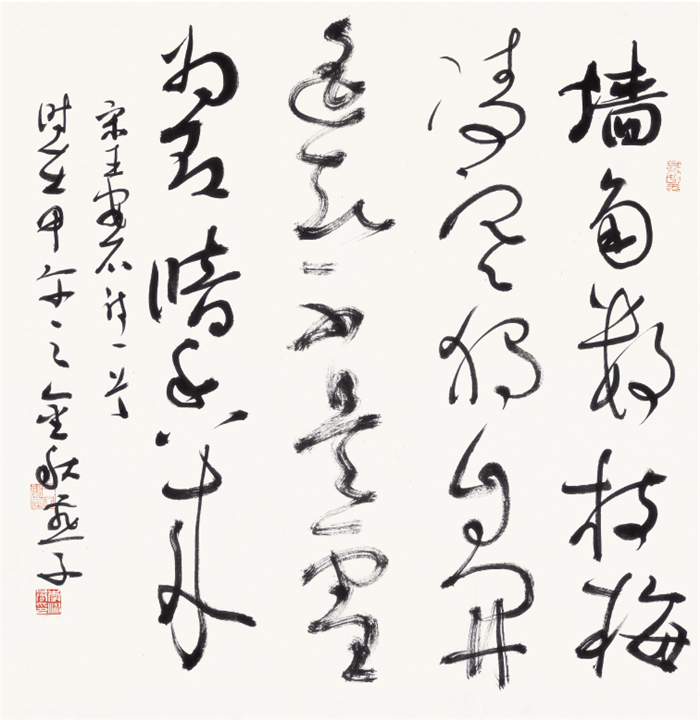 墙角数枝梅
凌寒独自开
遥知不是雪
为有暗香来
宋王安石诗一首
时在甲午之金秋燕子